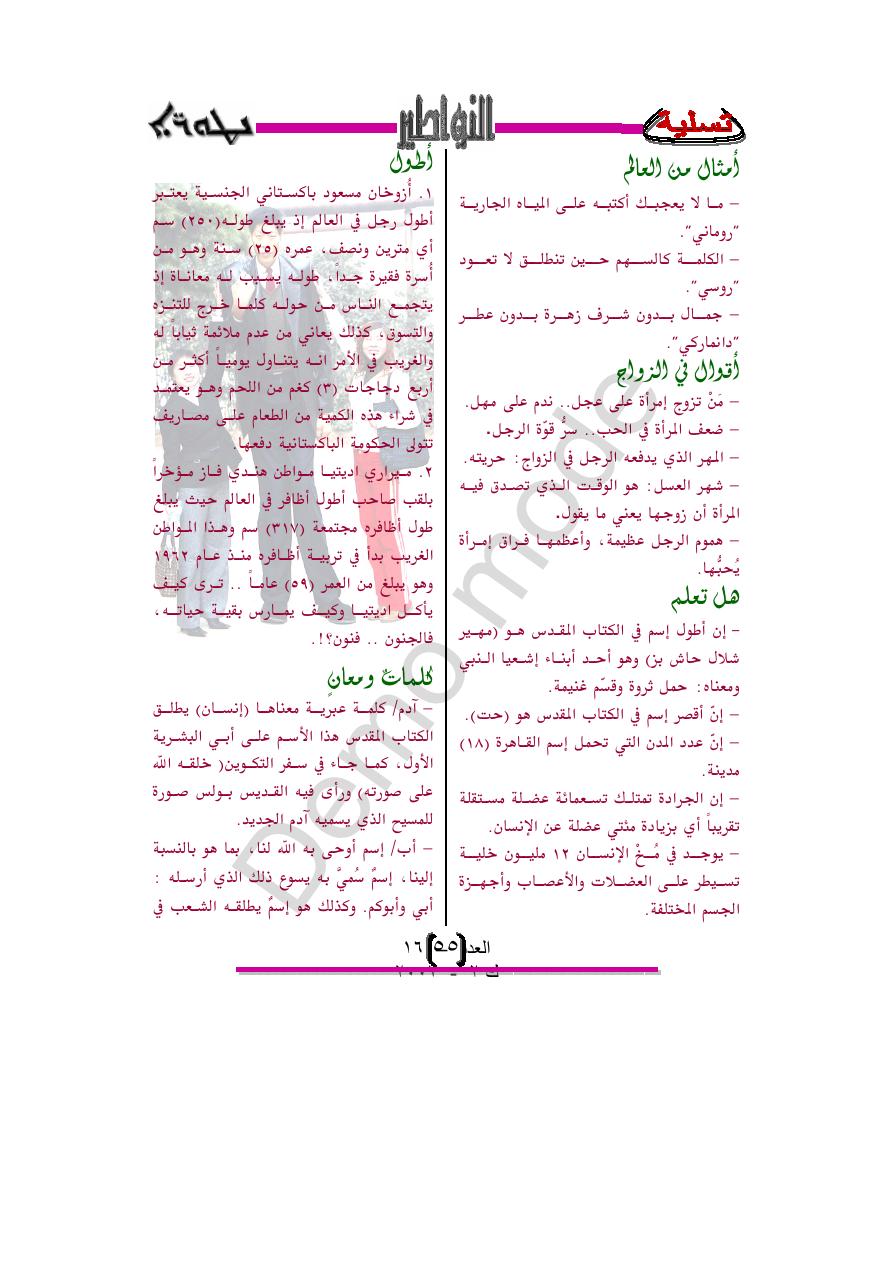 تسلية
النواطير
أمثال من العالم
– ما لا يعجبك أكتبه على المياه الجارية
"روماني".
– الكلمة كالسهم حين تنطلق لا تعود
"روسي".
– جمال بدون شرف زهرة بدون عطر
"دانماركي".
أقوال في الزواج
– مَنْ تزوج إمرأة على عجل.. ندم على مهل.
– ضعف المرأة في الحب.. سرُّ قوّة الرجل.
– المهر الذي يدفعه الرجل في الزواج: حريته.
– شهر العسل: هو الوقت الذي تصدق فيه
المرأة أن زوجها يعني ما يقول.
– هموم الرجل عظيمة، وأعظمها فراق إمرأة
يُحبُّها.
هل تعلم
– إن أطول إسم في الكتاب المقدس هو (مهير
شلال حاش بز) وهو أحد أبناء إشعيا النبي
ومعناه: حمل ثروة وقسّم غنيمة.
– إنّ أقصر إسم في الكتاب المقدس هو (حت).
– إنّ عدد المدن التي تحمل إسم القاهرة (١٨)
مدينة.
– إن الجرادة تمتلك تسعمائة عضلة مستقلة
تقريباً أي بزيادة مئتي عضلة عن الإنسان.
– يوجد في مُخْ الإنسان ١٢ مليون خلية
تسيطر على العضلات والأعصاب وأجهزة
الجسم المختلفة.
أطول
١. أُزوخان مسعود باكستاني الجنسية يعتبر
أطول رجل في العالم إذ يبلغ طوله(٢٥٠) سم
أي مترين ونصف، عمره (٢٥) سنة وهو من
أُسرة فقيرة جداً، طوله يسبب له معاناة إذ
يتجمع الناس من حوله كلما خرج للتنزه
والتسوق، كذلك يعاني من عدم ملائمة ثياباً له
والغريب في الأمر انه يتناول يومياً أكثر من
أربع دجاجات (٣) كغم من اللحم وهو يعتمد
في شراء هذه الكمية من الطعام على مصاريف
تتولى الحكومة الباكستانية دفعها.
٢. ميراري اديتيا مواطن هندي فاز مؤخراً
بلقب صاحب أطول أظافر في العالم حيث يبلغ
طول أظافره مجتمعة (٣١٧) سم وهذا المواطن
الغريب بدأ في تربية أظافره منذ عام ١٩٦٢
وهو يبلغ من العمر (٥٩) عاماً .. ترى كيف
يأكل اديتيا وكيف يمارس بقية حياته،
فالجنون .. فنون؟!.
كلماتٌ ومعانٍ
– آدم/ كلمة عبرية معناها (إنسان) يطلق
الكتاب المقدس هذا الأسم على أبي البشرية
الأول، كما جاء في سفر التكوين( خلقه الله
على صورته) ورأى فيه القديس بولس صورة
للمسيح الذي يسميه آدم الجديد.
– أب/ إسم أوحى به الله لنا، بما هو بالنسبة
إلينا، إسمٌ سُميَّ به يسوع ذلك الذي أرسله :
أبي وأبوكم. وكذلك هو إسمٌ يطلقه الشعب في
العدد(٥٥) ١٦
Demo mode